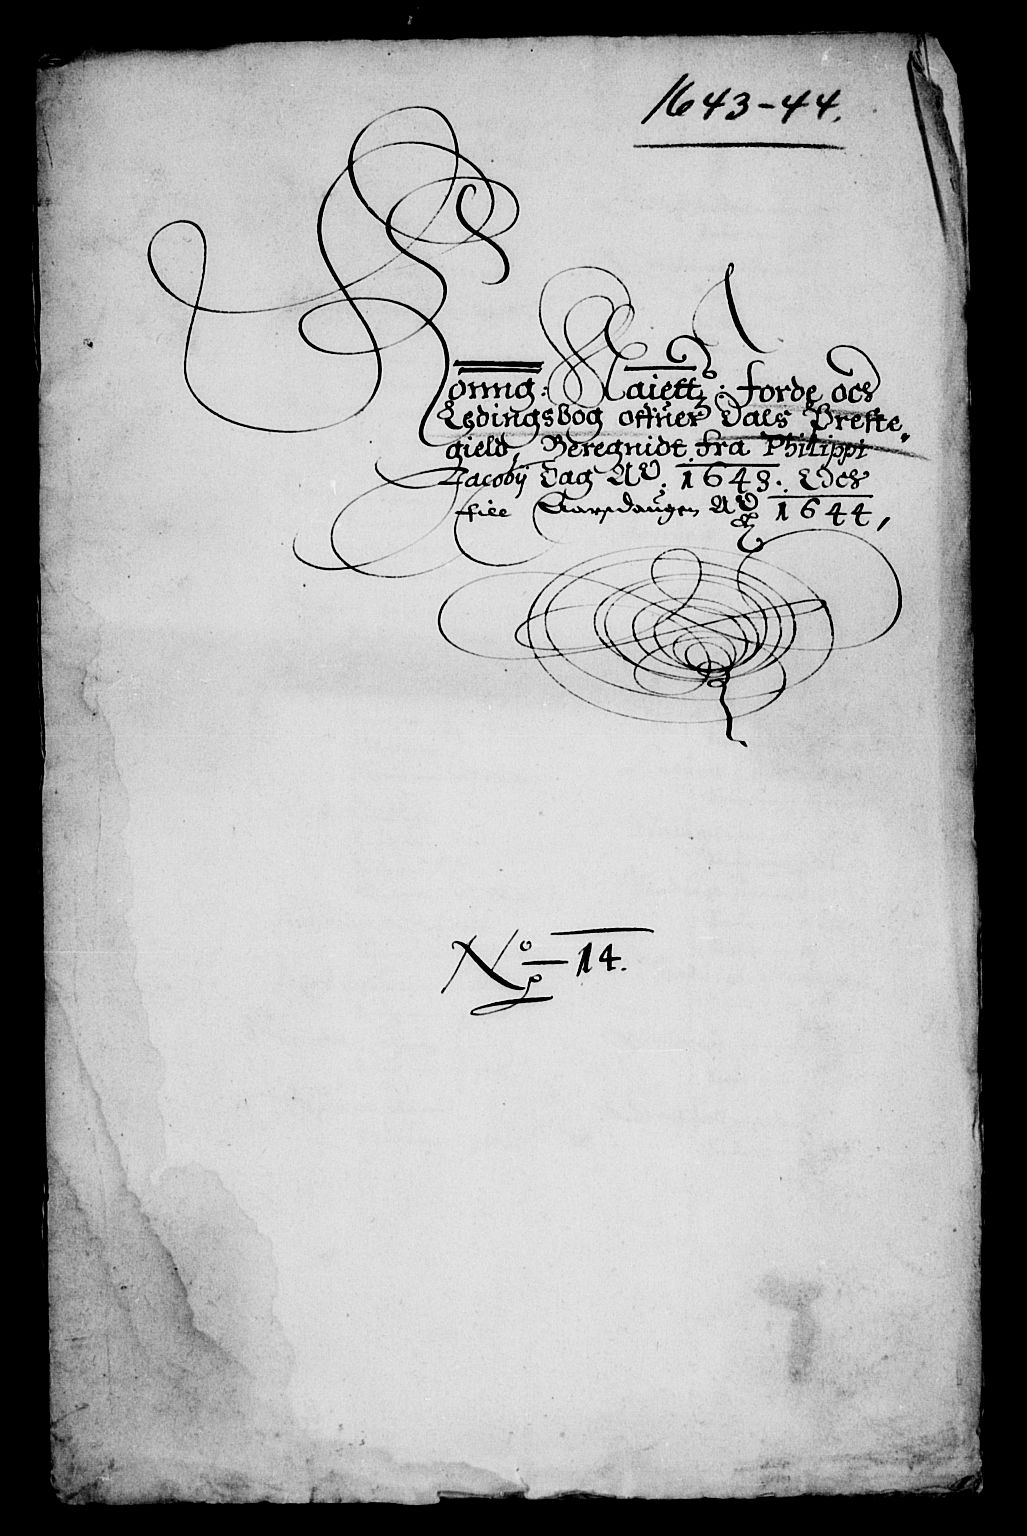 1643-44.
Konng: Maiettz: Jorde och
Ledingsbog offuer Dals Preste
gield, Beregnidt fra Philippi
Jacobij Dag AO. 1643. Och
till Aarsdaugen AO
1644,
No 14.